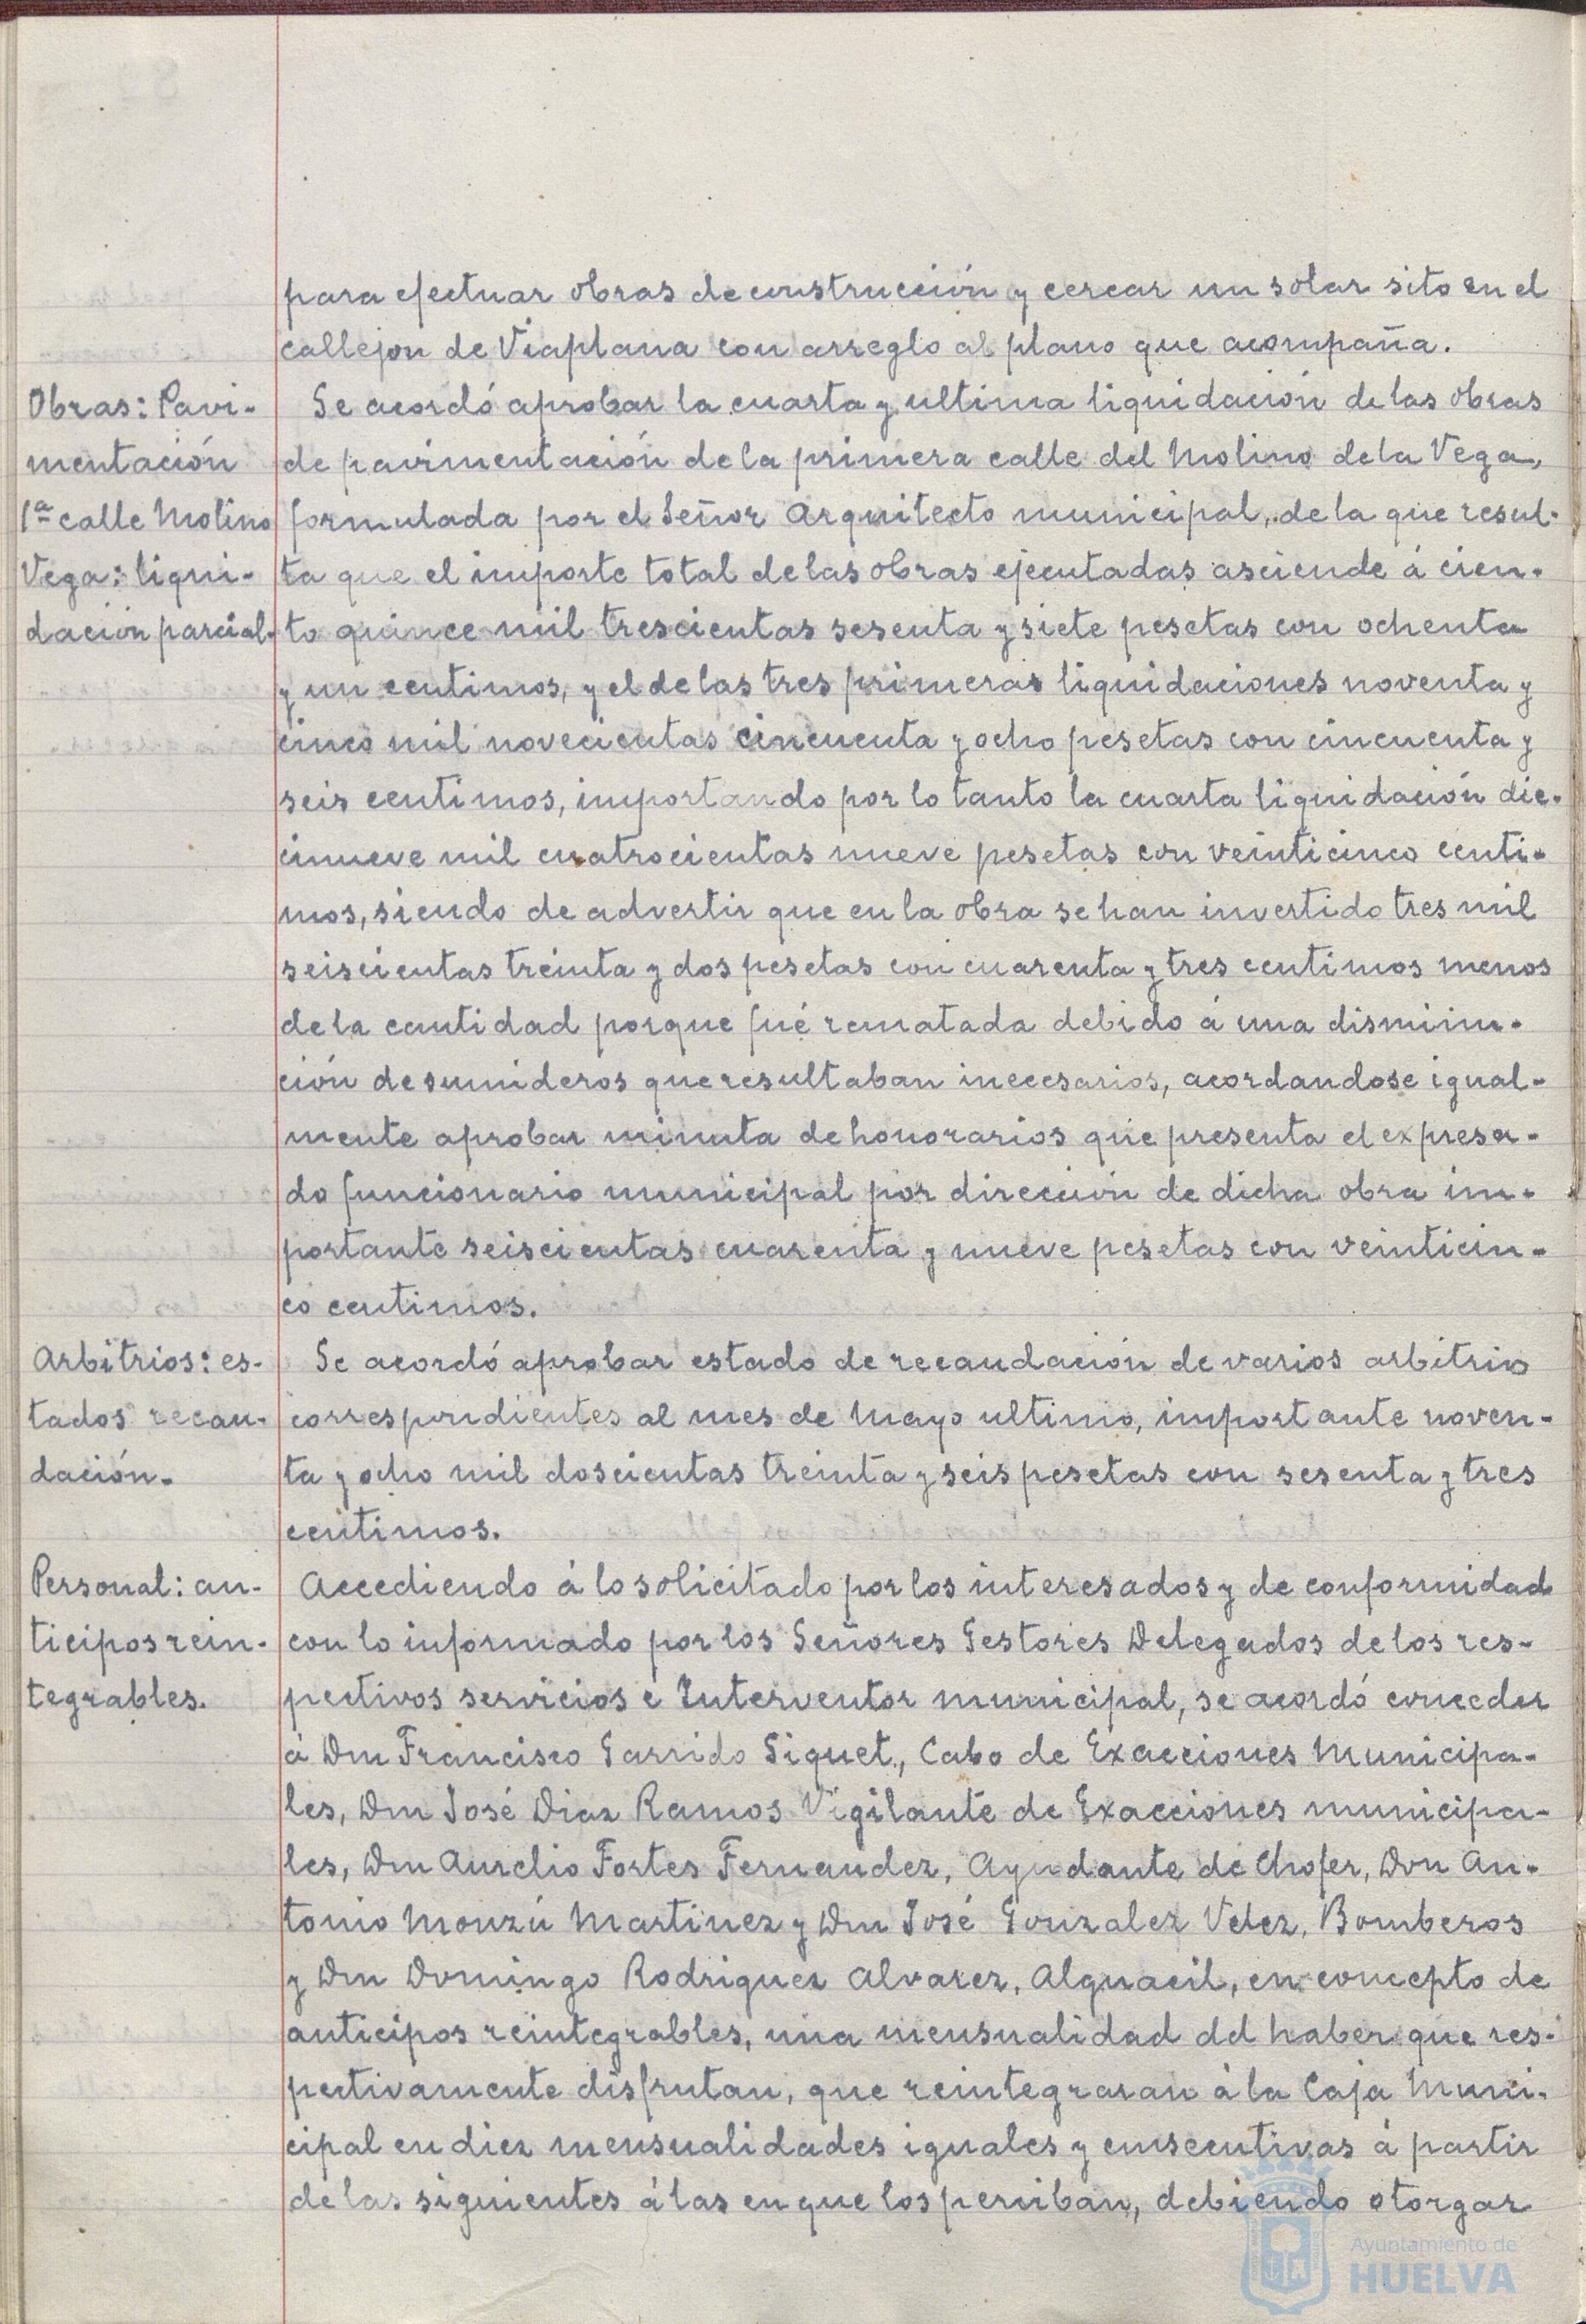 para efectuar obras de construcción y cercar un solar sito en el
callejon de Viaplana con arreglo al plano que acompaña.
Obras: Pavi-
mentación
1ª calle Molino
Vega: liqui-
dación parcial.
Se acordó aprobar la cuarta y ultima liquidación de las obras
de pavimentación de la primera calle del Molino de la Vega,
formulada por el Señor Arquitecto municipal, de la que resul-
ta que el importe total de las obras ejecutadas asciende á cien-
to quince mil trescientas sesenta y siete pesetas con ochenta
y un centimos, y el de las tres primeras liquidaciones noventa y
cinco mil novecientas cincuenta y ocho pesetas con cincuenta y
seis centimos, importando por lo tanto la cuarta liquidación die-
cinueve mil cuatrocientas nueve pesetas con veinticinco centi-
mos, siendo de advertir que en la obra se han invertido tres mil
seiscientas treinta y dos pesetas con cuarenta y tres centimos menos
de la cantidad porque fué rematada debido á una disminu-
ción de sumideros que resultaban inecesarios, acordandose igual-
mente aprobar minuta de honorarios que presenta el expresa-
do funcionario municipal por dirección de dicha obra im-
portante seiscientas cuarenta y nueve pesetas con veinticin-
co centimos.
Arbitrios: es-
tados recau-
dación.
Se acordó aprobar estado de recaudación de varios arbitrios
correspondientes al mes de Mayo ultimo, importante noven-
ta y ocho mil doscientas treinta y seis pesetas con sesenta y tres
centimos.
Personal: an-
ticipos rein-
tegrables.
Accediendo á lo solicitado por los interesados y de conformidad
con lo informado por los Señores Gestores Delegados de los res-
pectivos servicios é Interventor municipal, se acordó conceder
á Don Francisco Garrido Siguet, Cabo de Exacciones Municipa-
les, Don José Diaz Ramos Vigilante de Exacciones municipa-
les, Don Aurelio Fortes Fernandez, Ayudante de Chofer, Don An-
tonio Monzú Martinez y Don José Gonzalez Velez, Bomberos
y Don Domingo Rodriguez Alvarez, Alguacil, en concepto de
anticipos reintegrables, una mensualidad del haber que res-
pectivamente disfrutan, que reintegraran á la Caja Muni-
cipal en diez mensualidades iguales y consecutivas á partir
de las siguientes á las en que los perciban, debiendo otorgar
Ayuntamiento de
HUELVA